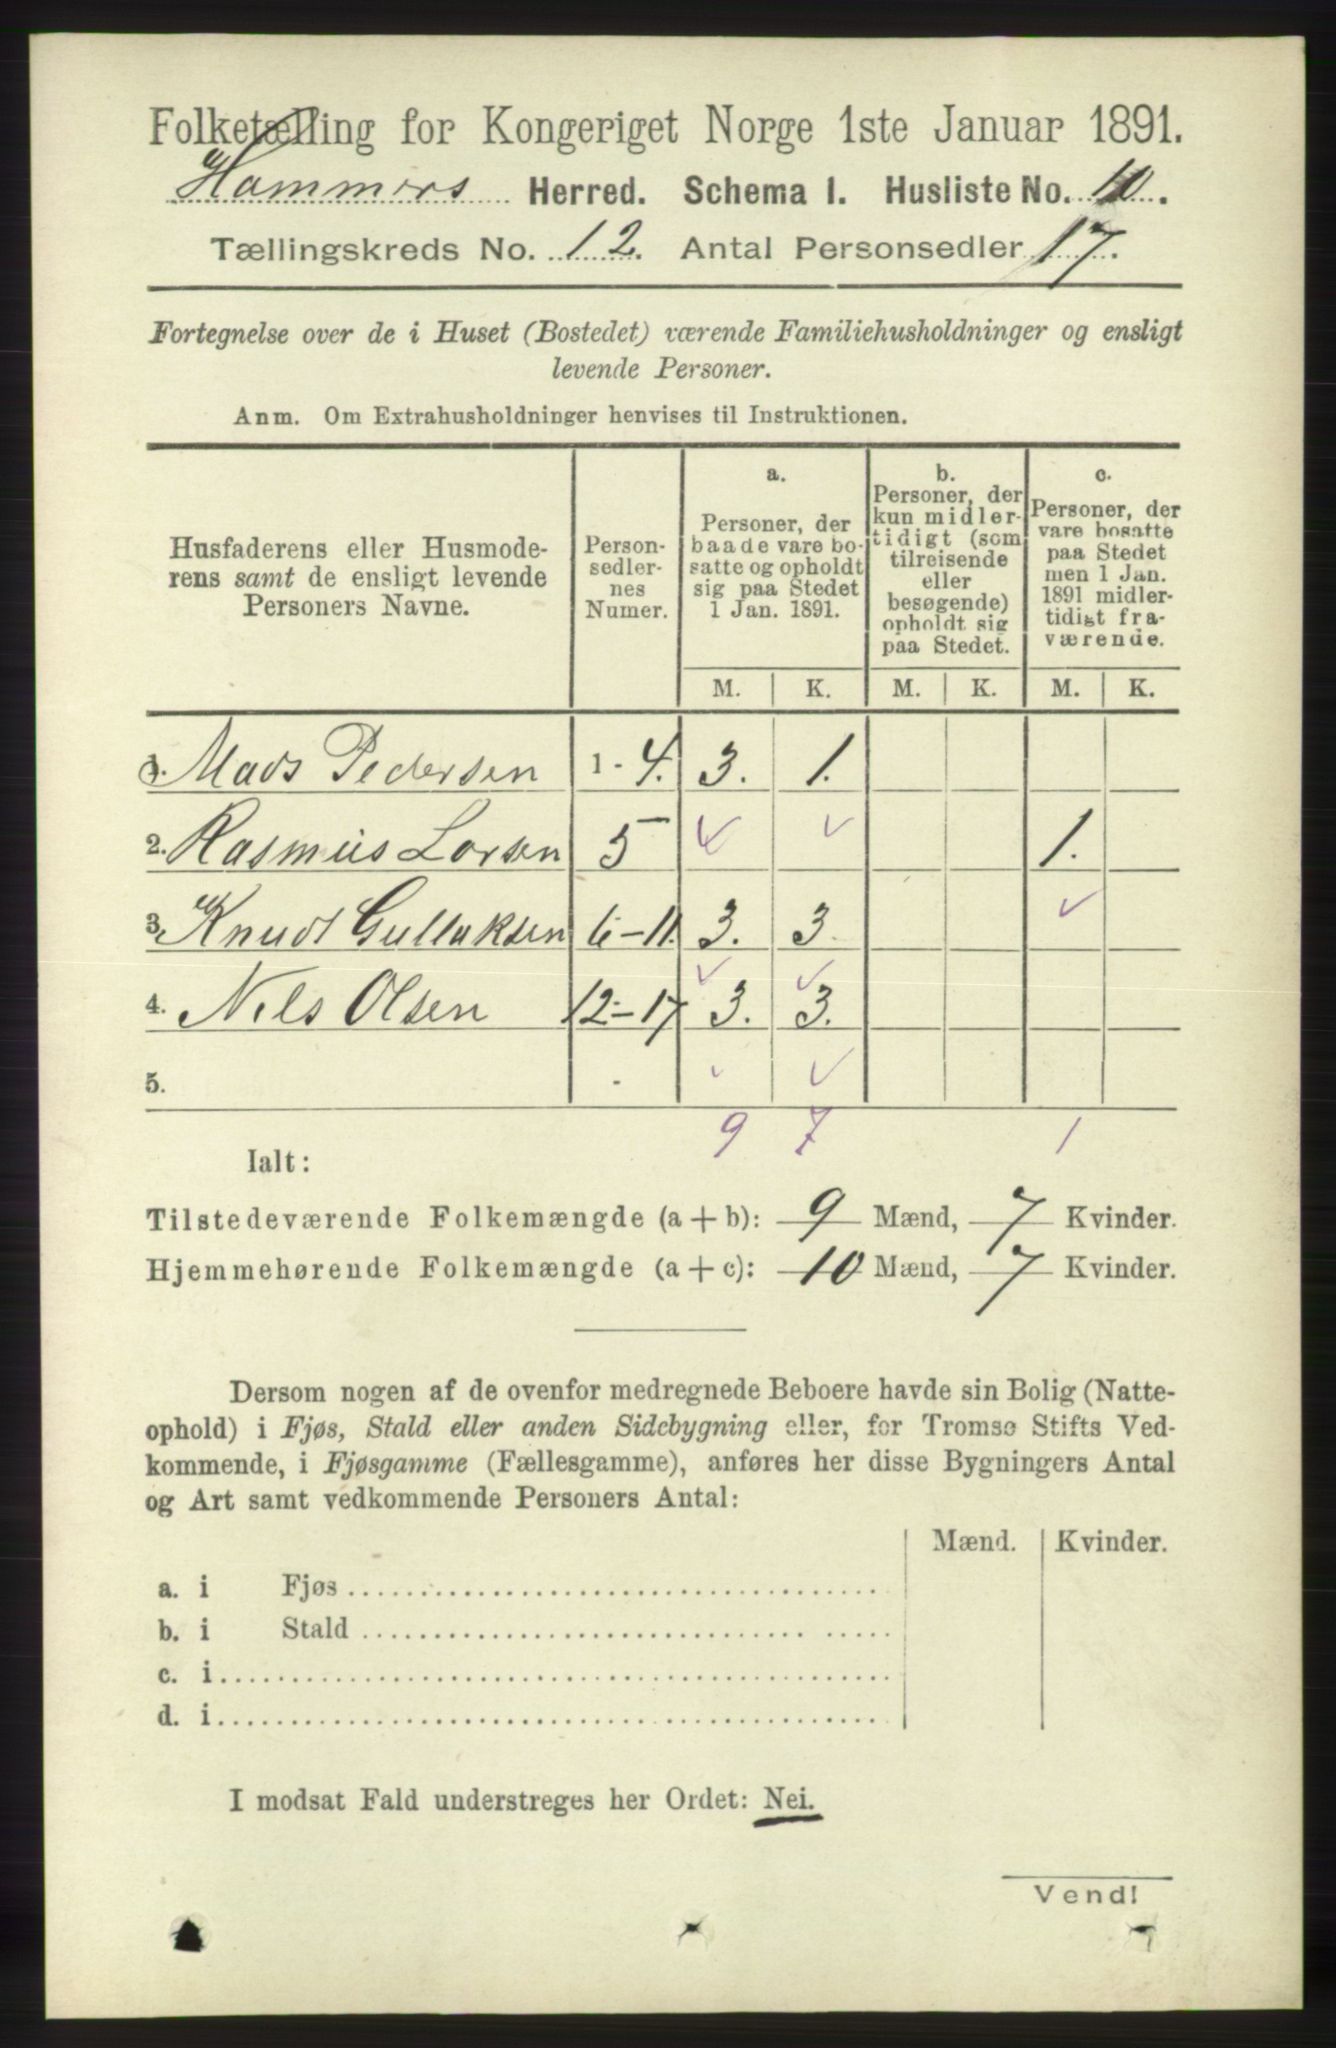 Folketælling for Kongeriget Norge 1ste Januar 1891.
Hammers Herred. Schema 1. Husliste No. 10.
Tællingskreds No. 12. Antal Personsedler 17.
Fortegnelse over de i Huset (Bostedet) værende Familiehusholdninger og ensligt
levende Personer.
Anm. Om Extrahusholdninger henvises til Instruktionen.
Husfaderens eller Husmode-
rens samt de ensligt levende
Personers Navne.
Person-
sedler-
nes
Numer.
a.
Personer, der
baade vare bo-
satte og opholdt
sig paa Stedet
1 Jan. 1891.
b.
Personer, der
kun midler-
tidigt (som
tilreisende
eller
besøgende)
opholdt sig
paa Stedet.
c.
Personer, der
vare bosatte
paa Stedet
men 1 Jan.
1891 midler-
tidigt fra-
værende.
M. K. M. K. M. K.
1. Mads Pedersen 1 - 4. 3. 1.
2. Rasmus Larsen 5 1.
3. Knudt Gullaksen 6-11. 3. 3.
4. Nils Olsen 12-17 3. 3.
5.
9 7 1
Ialt:
Tilstedeværende Folkemængde (a + b): 9 Mænd, 7 Kvinder.
Hjemmehørende Folkemængde (a + c): 10 Mænd, 7 Kvinder.
Dersom nogen af de ovenfor medregnede Beboere havde sin Bolig (Natte-
ophold) i Fjøs, Stald eller anden Sidebygning eller, for Tromsø Stifts Ved-
kommende, i Fjøsgamme (Fællesgamme), anføres her disse Bygningers Antal
og Art samt vedkommende Personers Antal:
Mænd. Kvinder.
a. i Fjøs
b. i Stald
c. i
d. i
I modsat Fald understreges her Ordet: Nei.
Vend!